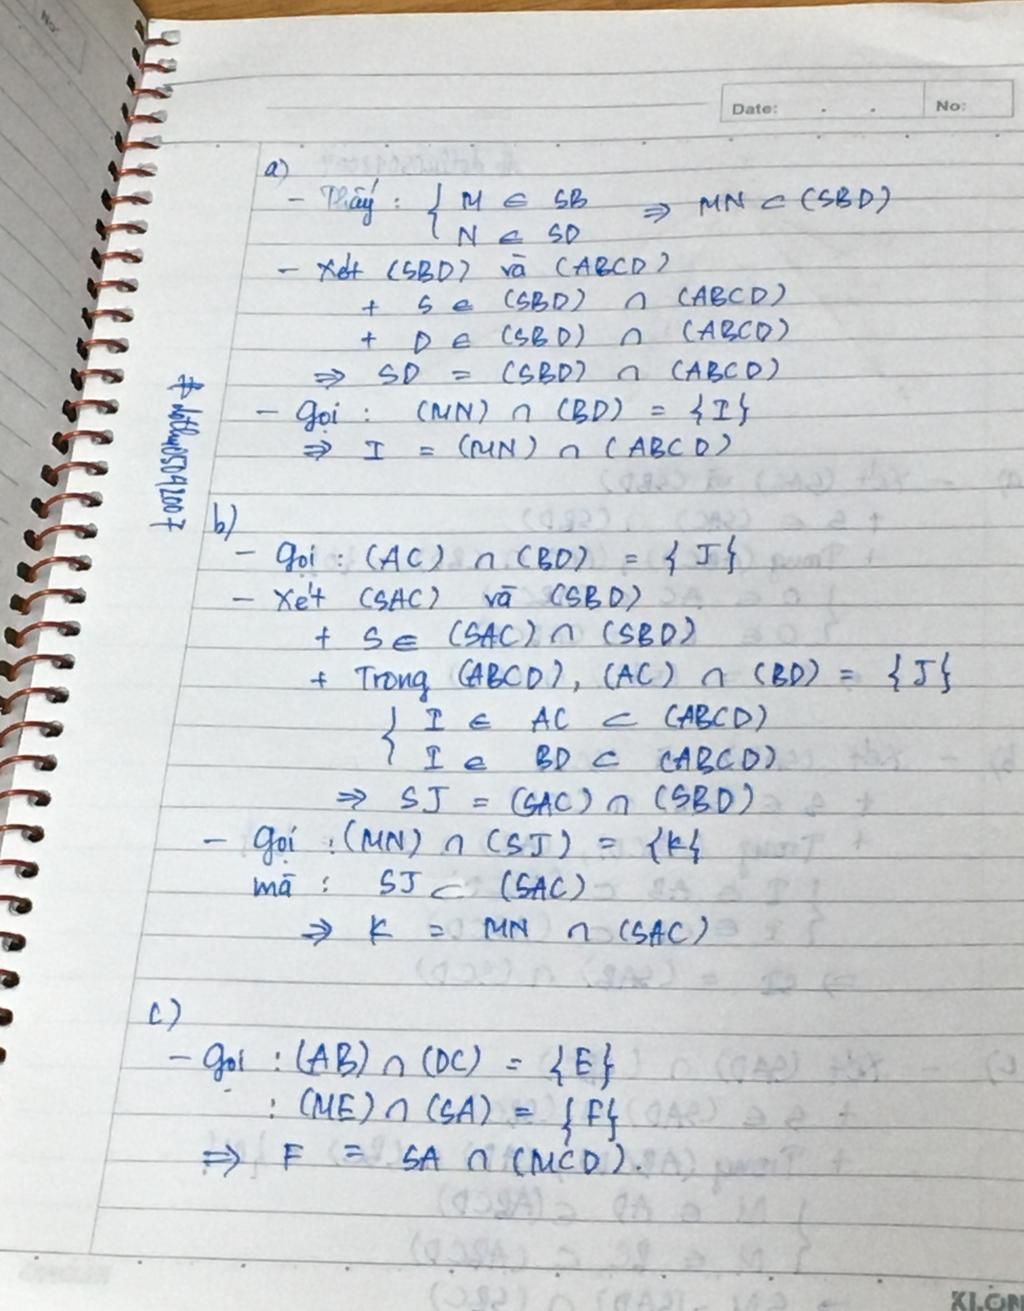 No:
Date: . . No:
a)
- Thấy : { M ∈ SB ⇒ MN ⊂ (SBD)
N ∈ SD
- Xét (SBD) và (ABCD)
+ S ∈ (SBD) ∩ (ABCD)
+ D ∈ (SBD) ∩ (ABCD)
⇒ SD = (SBD) ∩ (ABCD)
- Gọi : (MN) ∩ (BD) = {I}
⇒ I = (MN) ∩ (ABCD)
b)
- Gọi : (AC) ∩ (BD) = {J}
- Xét (SAC) và (SBD)
+ S ∈ (SAC) ∩ (SBD)
+ Trong (ABCD), (AC) ∩ (BD) = {J}
{ I ∈ AC ⊂ (ABCD)
I ∈ BD ⊂ (ABCD)
⇒ SJ = (SAC) ∩ (SBD)
- Gọi : (MN) ∩ (SJ) = {K}
mà : SJ ⊂ (SAC)
⇒ K = MN ∩ (SAC)
c)
- Gọi : (AB) ∩ (DC) = {E}
: (ME) ∩ (SA) = {F}
⇒ F = SA ∩ (MCD).
KLON